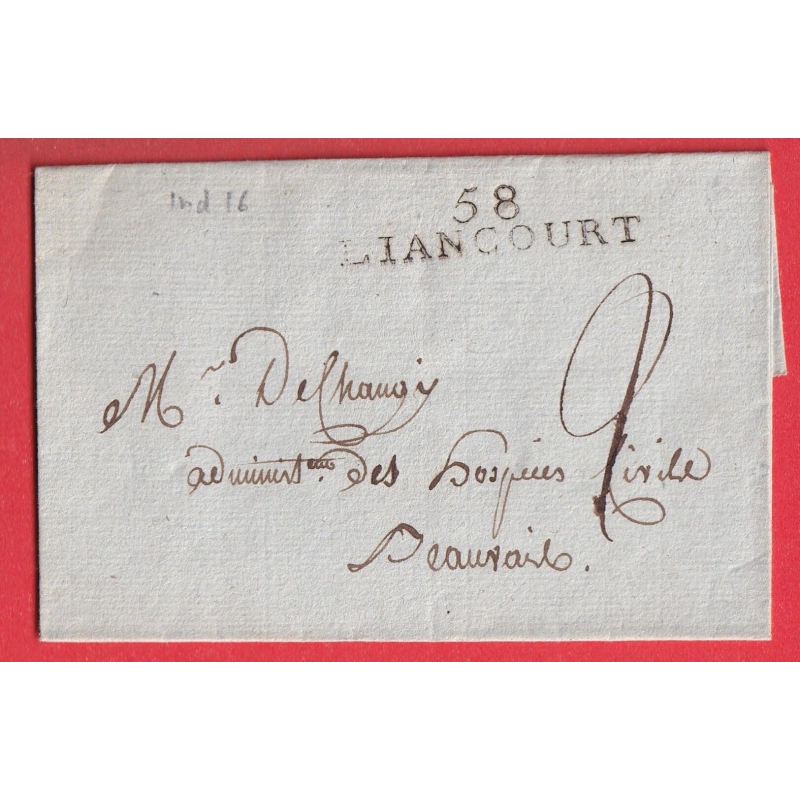 Ind 16
58
LIANCOURT
Mr. DeChauvy
administ. des hospices Civils
Beauvais.